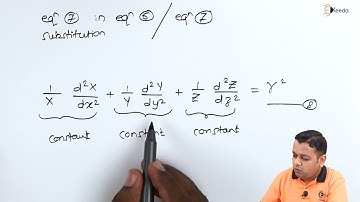 eqⁿ ⑦ in eqⁿ ⑤ / eqⁿ ②
substitution
Ekeeda
1/X d²X/dx² + 1/Y d²Y/dy² + 1/Z d²Z/dz² = γ² ⑧
constant constant constant